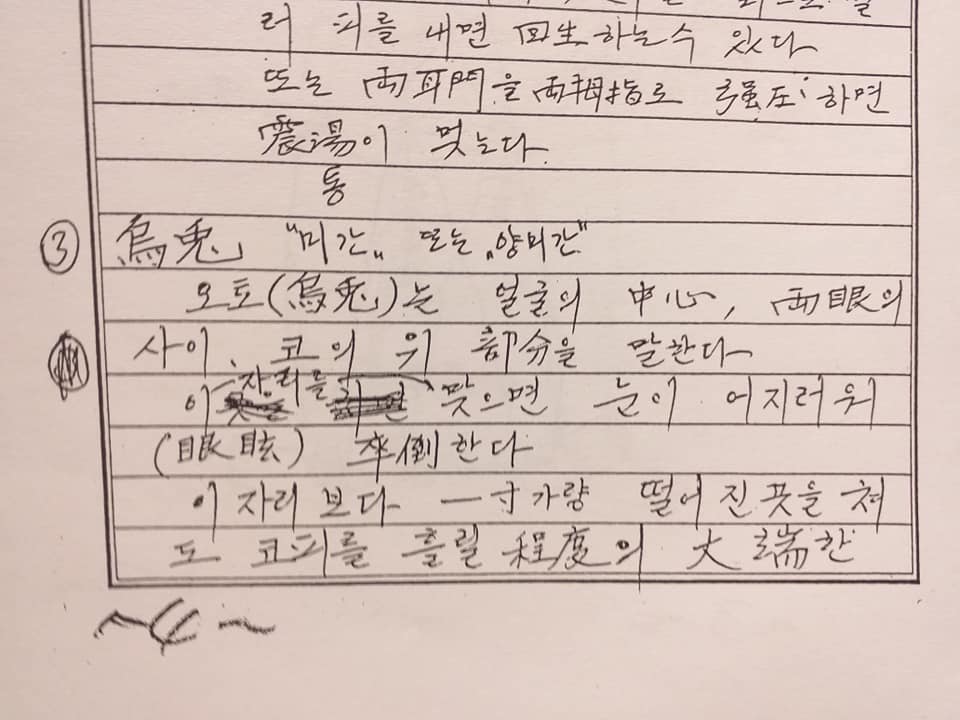 러 피를 내면 回生하는수 있다
또는 両耳門을 両拇指로 強圧하면
震湯이 멎는다
통
③ 烏兎 "미간" 또는 "양미간"
오토(烏兎)는 얼굴의 中心, 両眼의
사이, 코의 위 部分을 말한다
이 자리를 맞으면 눈이 어지러워
(眼眩) 卒倒한다
이 자리보다 一寸가량 떨어진 곳을 쳐
도 코피를 흘릴 程度의 大端한
~4~